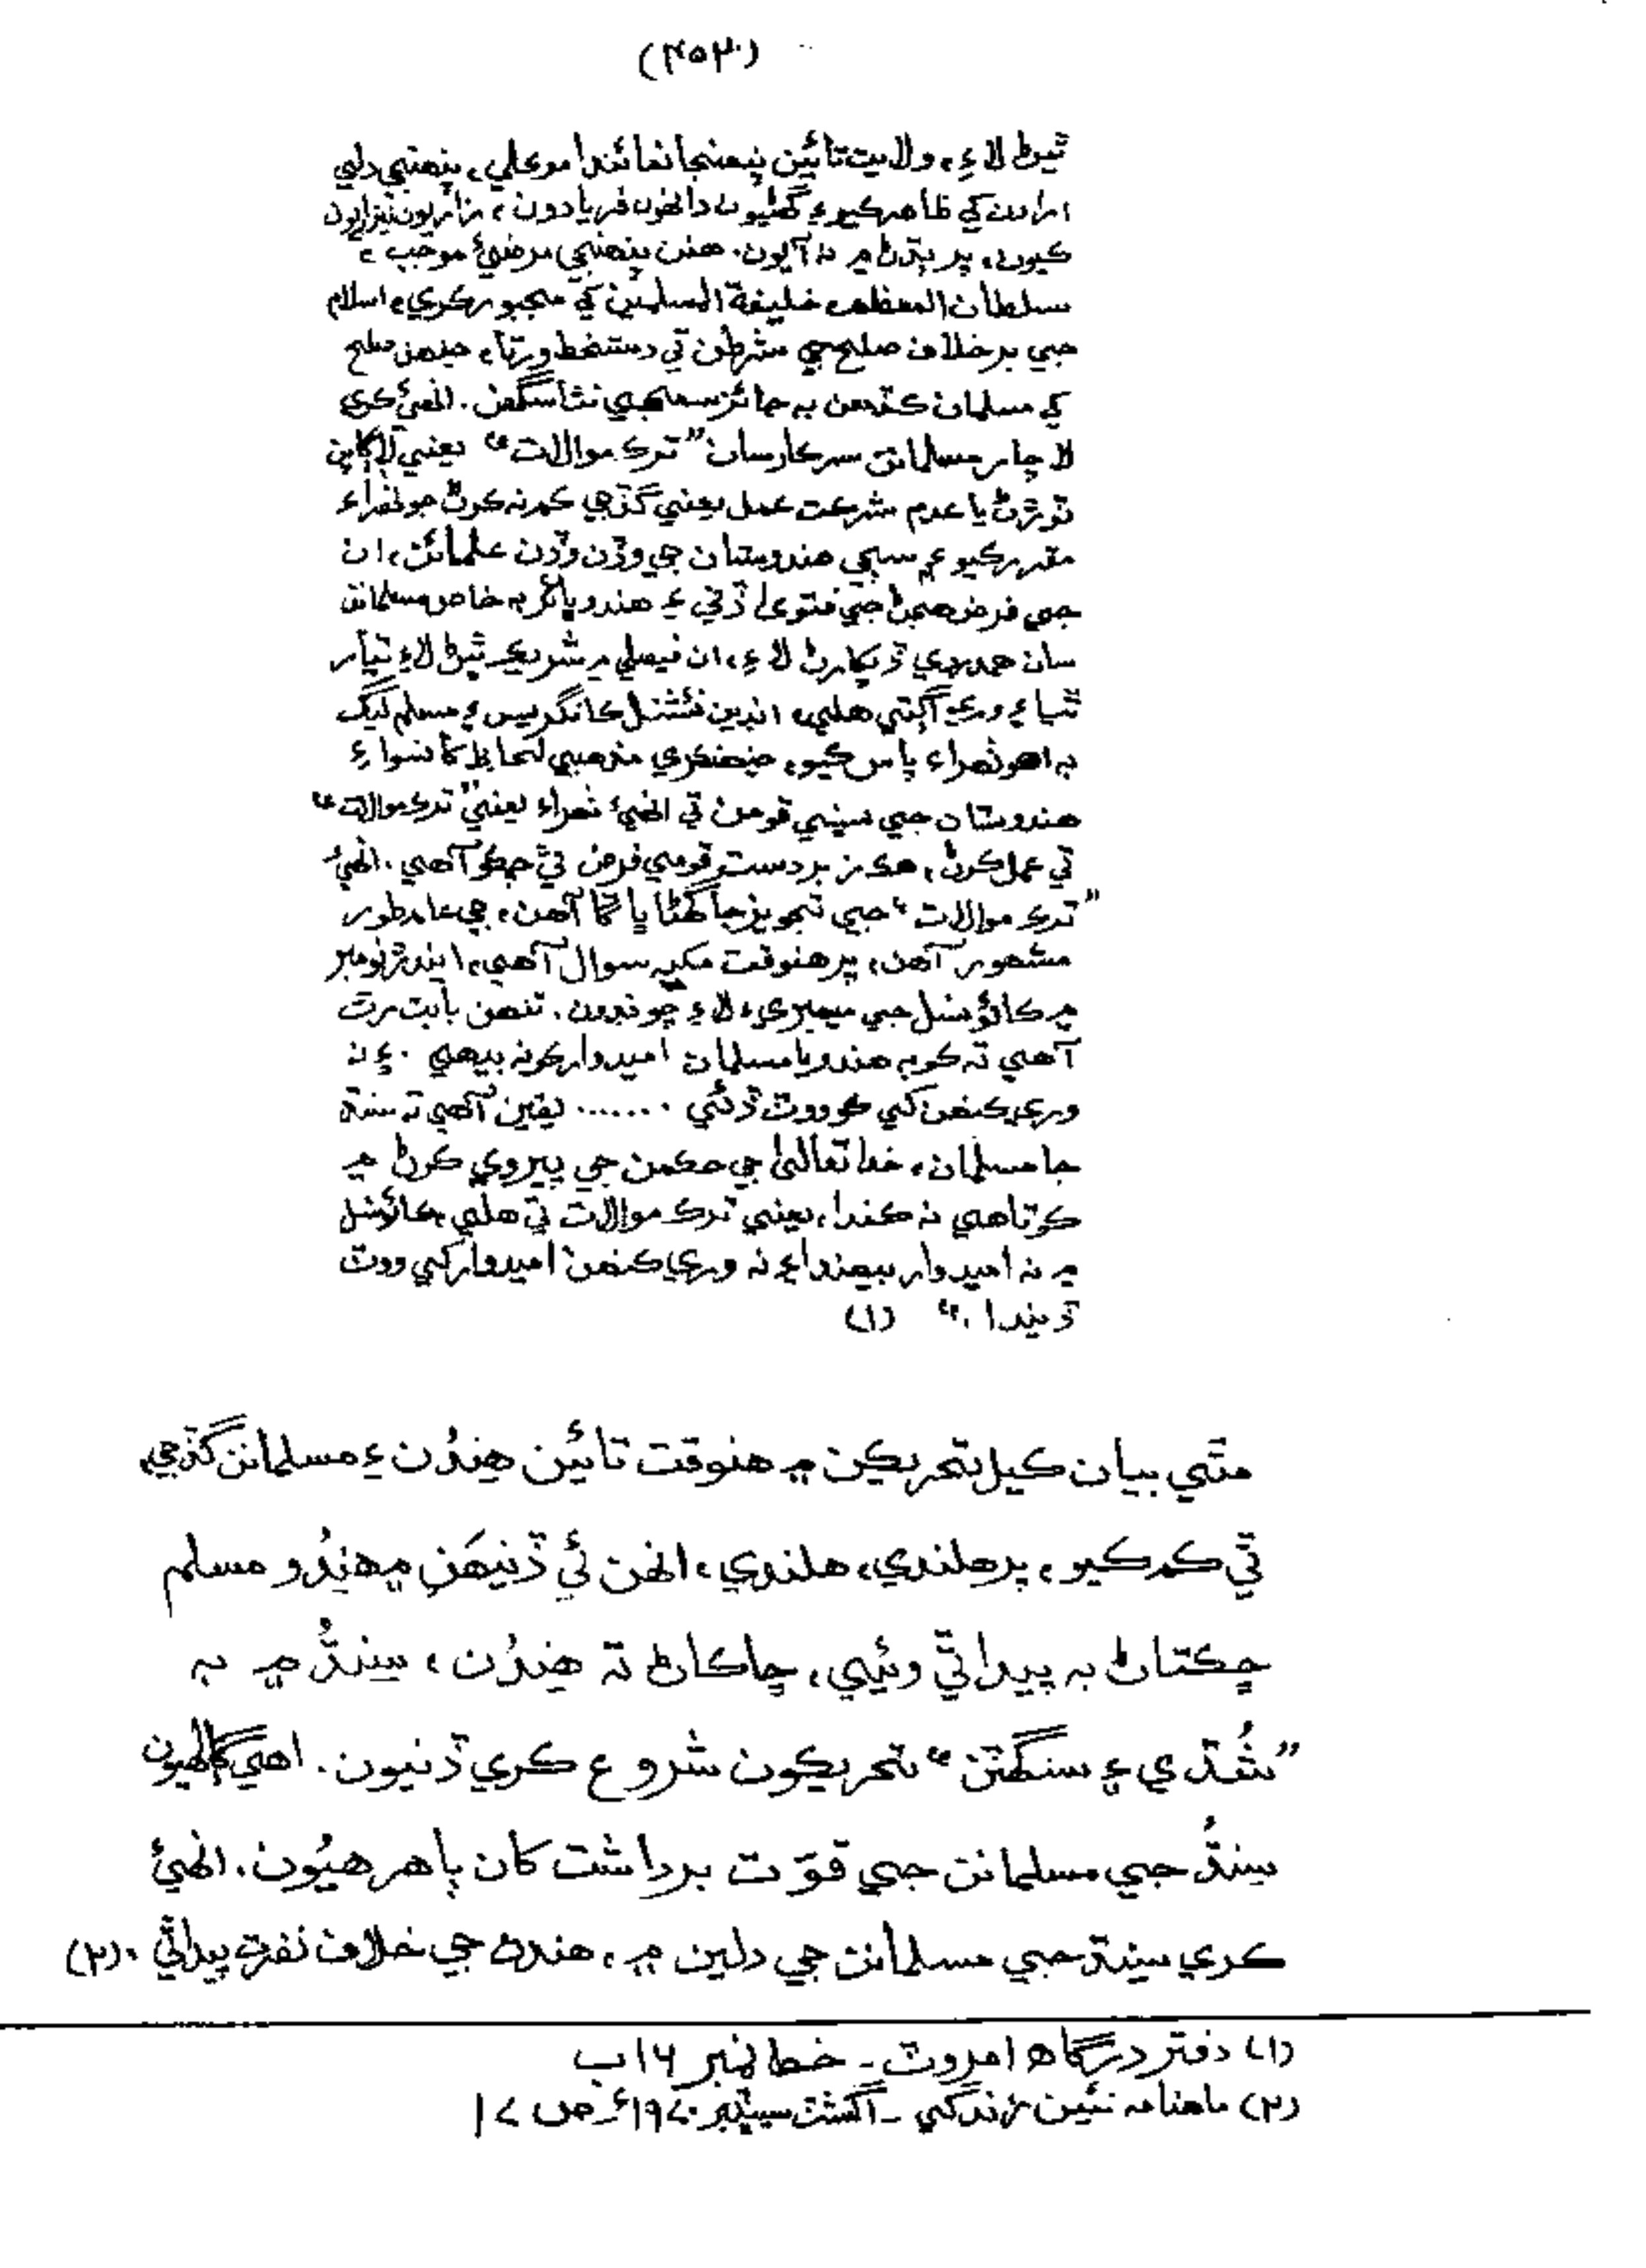 (۴۵۳)
ٿيڻ لاءِ، ولايت تائين پنهنجا نمائندا موڪلي، پنهنجي دلي
ارادن کي ظاهر ڪيو ۽ گهڻيون دانهون فريادون، زاريون نيزاريون
ڪيون، پر ٻڌڻ ۾ نه آيون. هنن پنهنجي مرضيءَ موجب،
سلطان المعظم، خليفة المسلمين کي مجبور ڪري، اسلام
جي برخلاف صلح جي شرطن تي دستخط ورتا، جنهن صلح
کي مسلمان ڪڏهن به جائز سمجهي نٿا سگهن. انهيءَ ڪري
لاچار مسلمانن سرڪار سان ”ترڪ موالات“ يعني لاڳاپن
ٽوڙڻ يا عدم شرڪت عمل يعني گڏجي ڪم نه ڪرڻ جو ٺهراءُ
مقرر ڪيو ۽ سڄي هندوستان جي وڏن وڏن علمائن، ان
جي فرض هجڻ جي فتويٰ ڏني ۽ هندو ڀائر به خاص مسلمانن
سان همدردي ڏيکارڻ لاءِ، ان فيصلي ۾ شريڪ ٿيڻ لاءِ تيار
ٿيا ۽ وري اڳتي هلي، انڊين نئشنل ڪانگريس ۽ مسلم ليگ
به اهو ٺهراءُ پاس ڪيو، جنهنڪري مذهبي لحاظ کانسواءِ
هندوستان جي سڀني قومن تي انهيءَ ٺهراءُ يعني ”ترڪ موالات“
تي عمل ڪرڻ، هڪ زبردست قومي فرض ٿي چڪو آهي. انهيءَ
”ترڪ موالات“ جي تجويز جا گهڻا ڀاڱا آهن، جي عام طور
مشهور آهن، پر هنوقت مکيه سوال آهي، ايندڙ نومبر
۾ ڪائونسل جي ميمبريءَ لاءِ چونڊون. تنهن بابت مرت
آهي ته ڪو به هندو يا مسلمان اميدوار ڪونه بيهي. ۽ نه
وري ڪنهن کي ڪو ووٽ ڏئي ....... يقين آهي ته سنڌ
جا مسلمان، خدا تعاليٰ جي حڪمن جي پيروي ڪرڻ ۾
ڪوتاهي نه ڪندا، يعني ترڪ موالات تي هلي، ڪائونسل
۾ نه اميدوار بيهندا ۽ نه وري ڪنهن اميدوار کي ووٽ
ڏيندا.“ (۱)
مٿي بيان ڪيل تحريڪن ۾ هنوقت تائين هِندُن ۽ مسلمانن گڏجي،
ٿي ڪم ڪيو، پر هلندي، هلندي، انهن ئي ڏينهَن ۾ هِندُو مسلم
ڇڪتاڻ به پيدا ٿي ويئي، ڇاڪاڻ ته هِندُن، سِنڌُ ۾ به
”شُڌي ۽ سنگهٽن“ تحريڪون شروع ڪري ڏنيون. اهي ڳالهيون
سِنڌُ جي مسلمانن جي قوّت برداشت کان ٻاهر هيُون. انهيءَ
ڪري سِنڌ جي مسلمانن جي دلين ۾، هندن جي خلاف نفرت پيدا ٿي. (۲)
(۱) دفتر درگاهه امروٽ - خط نمبر ۱۶ ب
(۲) ماهنامه نئين زندگي - آگسٽ سيپٽمبر ۱۹۷۰ع ص ۱۷